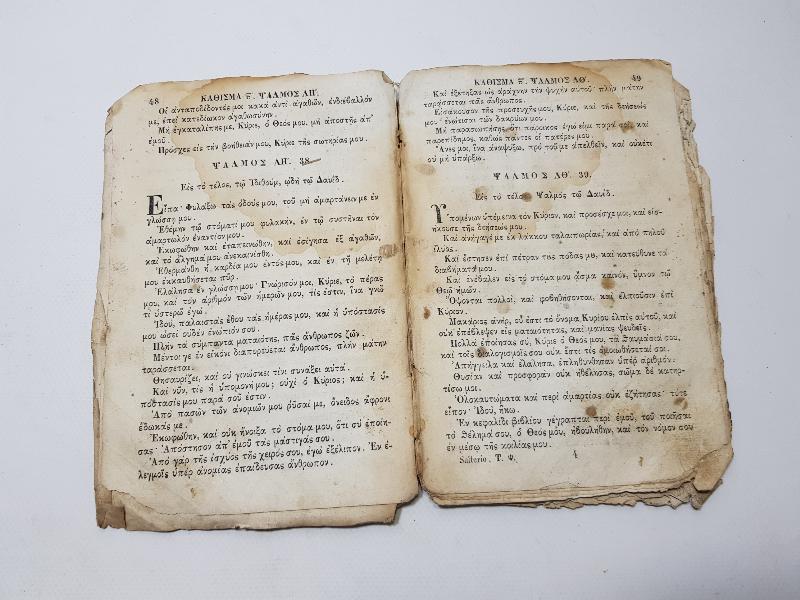 48 ΚΑΘΙΣΜΑ Ξ'. ΨΑΛΜΟΣ ΛΗ'.
Οἱ ἀνταποδίδοντές μοι κακὰ ἀντὶ ἀγαθῶν, ἐνδιέβαλλόν
με, ἐπεὶ κατεδίωκον ἀγαθωσύνην.
Μὴ ἐγκαταλίπῃς με, Κύριε, ὁ Θεός μου, μὴ ἀποστῇς ἀπ'
ἐμοῦ.
Πρόσχες εἰς τὴν βοήθειάν μου, Κύριε τῆς σωτηρίας μου.
ΨΑΛΜΟΣ ΛΗ'. 38
Εἰς τὸ τέλος, τῷ Ἰδιθούμ, ᾠδὴ τῷ Δαυΐδ.
Εἶπα· Φυλάξω τὰς ὁδούς μου, τοῦ μὴ ἁμαρτάνειν με ἐν
γλώσσῃ μου.
Ἐθέμην τῷ στόματί μου φυλακήν, ἐν τῷ συστῆναι τὸν
ἁμαρτωλὸν ἐναντίον μου.
Ἐκωφώθην καὶ ἐταπεινώθην, καὶ ἐσίγησα ἐξ ἀγαθῶν,
καὶ τὸ ἄλγημά μου ἀνεκαινίσθη.
Ἐθερμάνθη ἡ καρδία μου ἐντός μου, καὶ ἐν τῇ μελέτῃ
μου ἐκκαυθήσεται πῦρ.
Ἐλάλησα ἐν γλώσσῃ μου· Γνώρισόν μοι, Κύριε, τὸ πέρας
μου, καὶ τὸν ἀριθμὸν τῶν ἡμερῶν μου, τίς ἐστιν, ἵνα γνῶ
τί ὑστερῶ ἐγώ.
Ἰδού, παλαιστὰς ἔθου τὰς ἡμέρας μου, καὶ ἡ ὑπόστασίς
μου ὡσεὶ οὐδὲν ἐνώπιόν σου.
Πλὴν τὰ σύμπαντα ματαιότης, πᾶς ἄνθρωπος ζῶν.
Μέντοιγε ἐν εἰκόνι διαπορεύεται ἄνθρωπος, πλὴν μάτην
ταράσσεται.
Θησαυρίζει, καὶ οὐ γινώσκει τίνι συνάξει αὐτά.
Καὶ νῦν, τίς ἡ ὑπομονή μου; οὐχὶ ὁ Κύριος; καὶ ἡ ὑ-
πόστασίς μου παρὰ σοῦ ἐστιν.
Ἀπὸ πασῶν τῶν ἀνομιῶν μου ῥῦσαί με, ὄνειδος ἄφρονι
ἔδωκάς με.
Ἐκωφώθην, καὶ οὐκ ἤνοιξα τὸ στόμα μου, ὅτι σὺ ἐποίη-
σας· Ἀπόστησον ἀπ' ἐμοῦ τὰς μάστιγάς σου.
Ἀπὸ γὰρ τῆς ἰσχύος τῆς χειρός σου, ἐγὼ ἐξέλιπον. Ἐν ἐ-
λεγμοῖς ὑπὲρ ἀνομίας ἐπαίδευσας ἄνθρωπον.
ΚΑΘΙΣΜΑ Ξ'. ΨΑΛΜΟΣ ΛΘ'. 49
Καὶ ἐξέτηξας ὡς ἀράχνην τὴν ψυχὴν αὐτοῦ· πλὴν μάτην
ταράσσεται πᾶς ἄνθρωπος.
Εἰσάκουσον τῆς προσευχῆς μου, Κύριε, καὶ τῆς δεήσεώς
μου· ἐνώτισαι τῶν δακρύων μου.
Μὴ παρασιωπήσῃς, ὅτι πάροικος ἐγώ εἰμι παρὰ σοί, καὶ
παρεπίδημος, καθὼς πάντες οἱ πατέρες μου.
Ἄνες μοι, ἵνα ἀναψύξω, πρὸ τοῦ με ἀπελθεῖν, καὶ οὐκέτι
οὐ μὴ ὑπάρξω.
ΨΑΛΜΟΣ ΛΘ'. 39.
Εἰς τὸ τέλος, Ψαλμὸς τῷ Δαυΐδ.
Ὑπομένων ὑπέμεινα τὸν Κύριον, καὶ προσέσχε μοι, καὶ εἰσ-
ήκουσε τῆς δεήσεώς μου.
Καὶ ἀνήγαγέ με ἐκ λάκκου ταλαιπωρίας, καὶ ἀπὸ πηλοῦ
ἰλύος.
Καὶ ἔστησεν ἐπὶ πέτραν τοὺς πόδας μου, καὶ κατεύθυνε τὰ
διαβήματά μου.
Καὶ ἐνέβαλεν εἰς τὸ στόμα μου ᾆσμα καινόν, ὕμνον τῷ
Θεῷ ἡμῶν.
Ὄψονται πολλοί, καὶ φοβηθήσονται, καὶ ἐλπιοῦσιν ἐπὶ
Κύριον.
Μακάριος ἀνήρ, οὗ ἐστι τὸ ὄνομα Κυρίου ἐλπὶς αὐτοῦ, καὶ
οὐκ ἐπέβλεψεν εἰς ματαιότητας, καὶ μανίας ψευδεῖς.
Πολλὰ ἐποίησας σύ, Κύριε ὁ Θεός μου, τὰ θαυμάσιά σου,
καὶ τοῖς διαλογισμοῖς σου οὐκ ἔστι τίς ὁμοιωθήσεταί σοι.
Ἀπήγγειλα καὶ ἐλάλησα, ἐπληθύνθησαν ὑπὲρ ἀριθμόν.
Θυσίαν καὶ προσφορὰν οὐκ ἠθέλησας, σῶμα δὲ κατηρ-
τίσω μοι.
Ὁλοκαυτώματα καὶ περὶ ἁμαρτίας οὐκ ἐζήτησας· τότε
εἶπον· Ἰδού, ἥκω.
Ἐν κεφαλίδι βιβλίου γέγραπται περὶ ἐμοῦ, τοῦ ποιῆσαι
τὸ θέλημά σου, ὁ Θεός μου, ἠβουλήθην, καὶ τὸν νόμον σου
ἐν μέσῳ τῆς κοιλίας μου.
Salterio. Τ. Ψ. 4